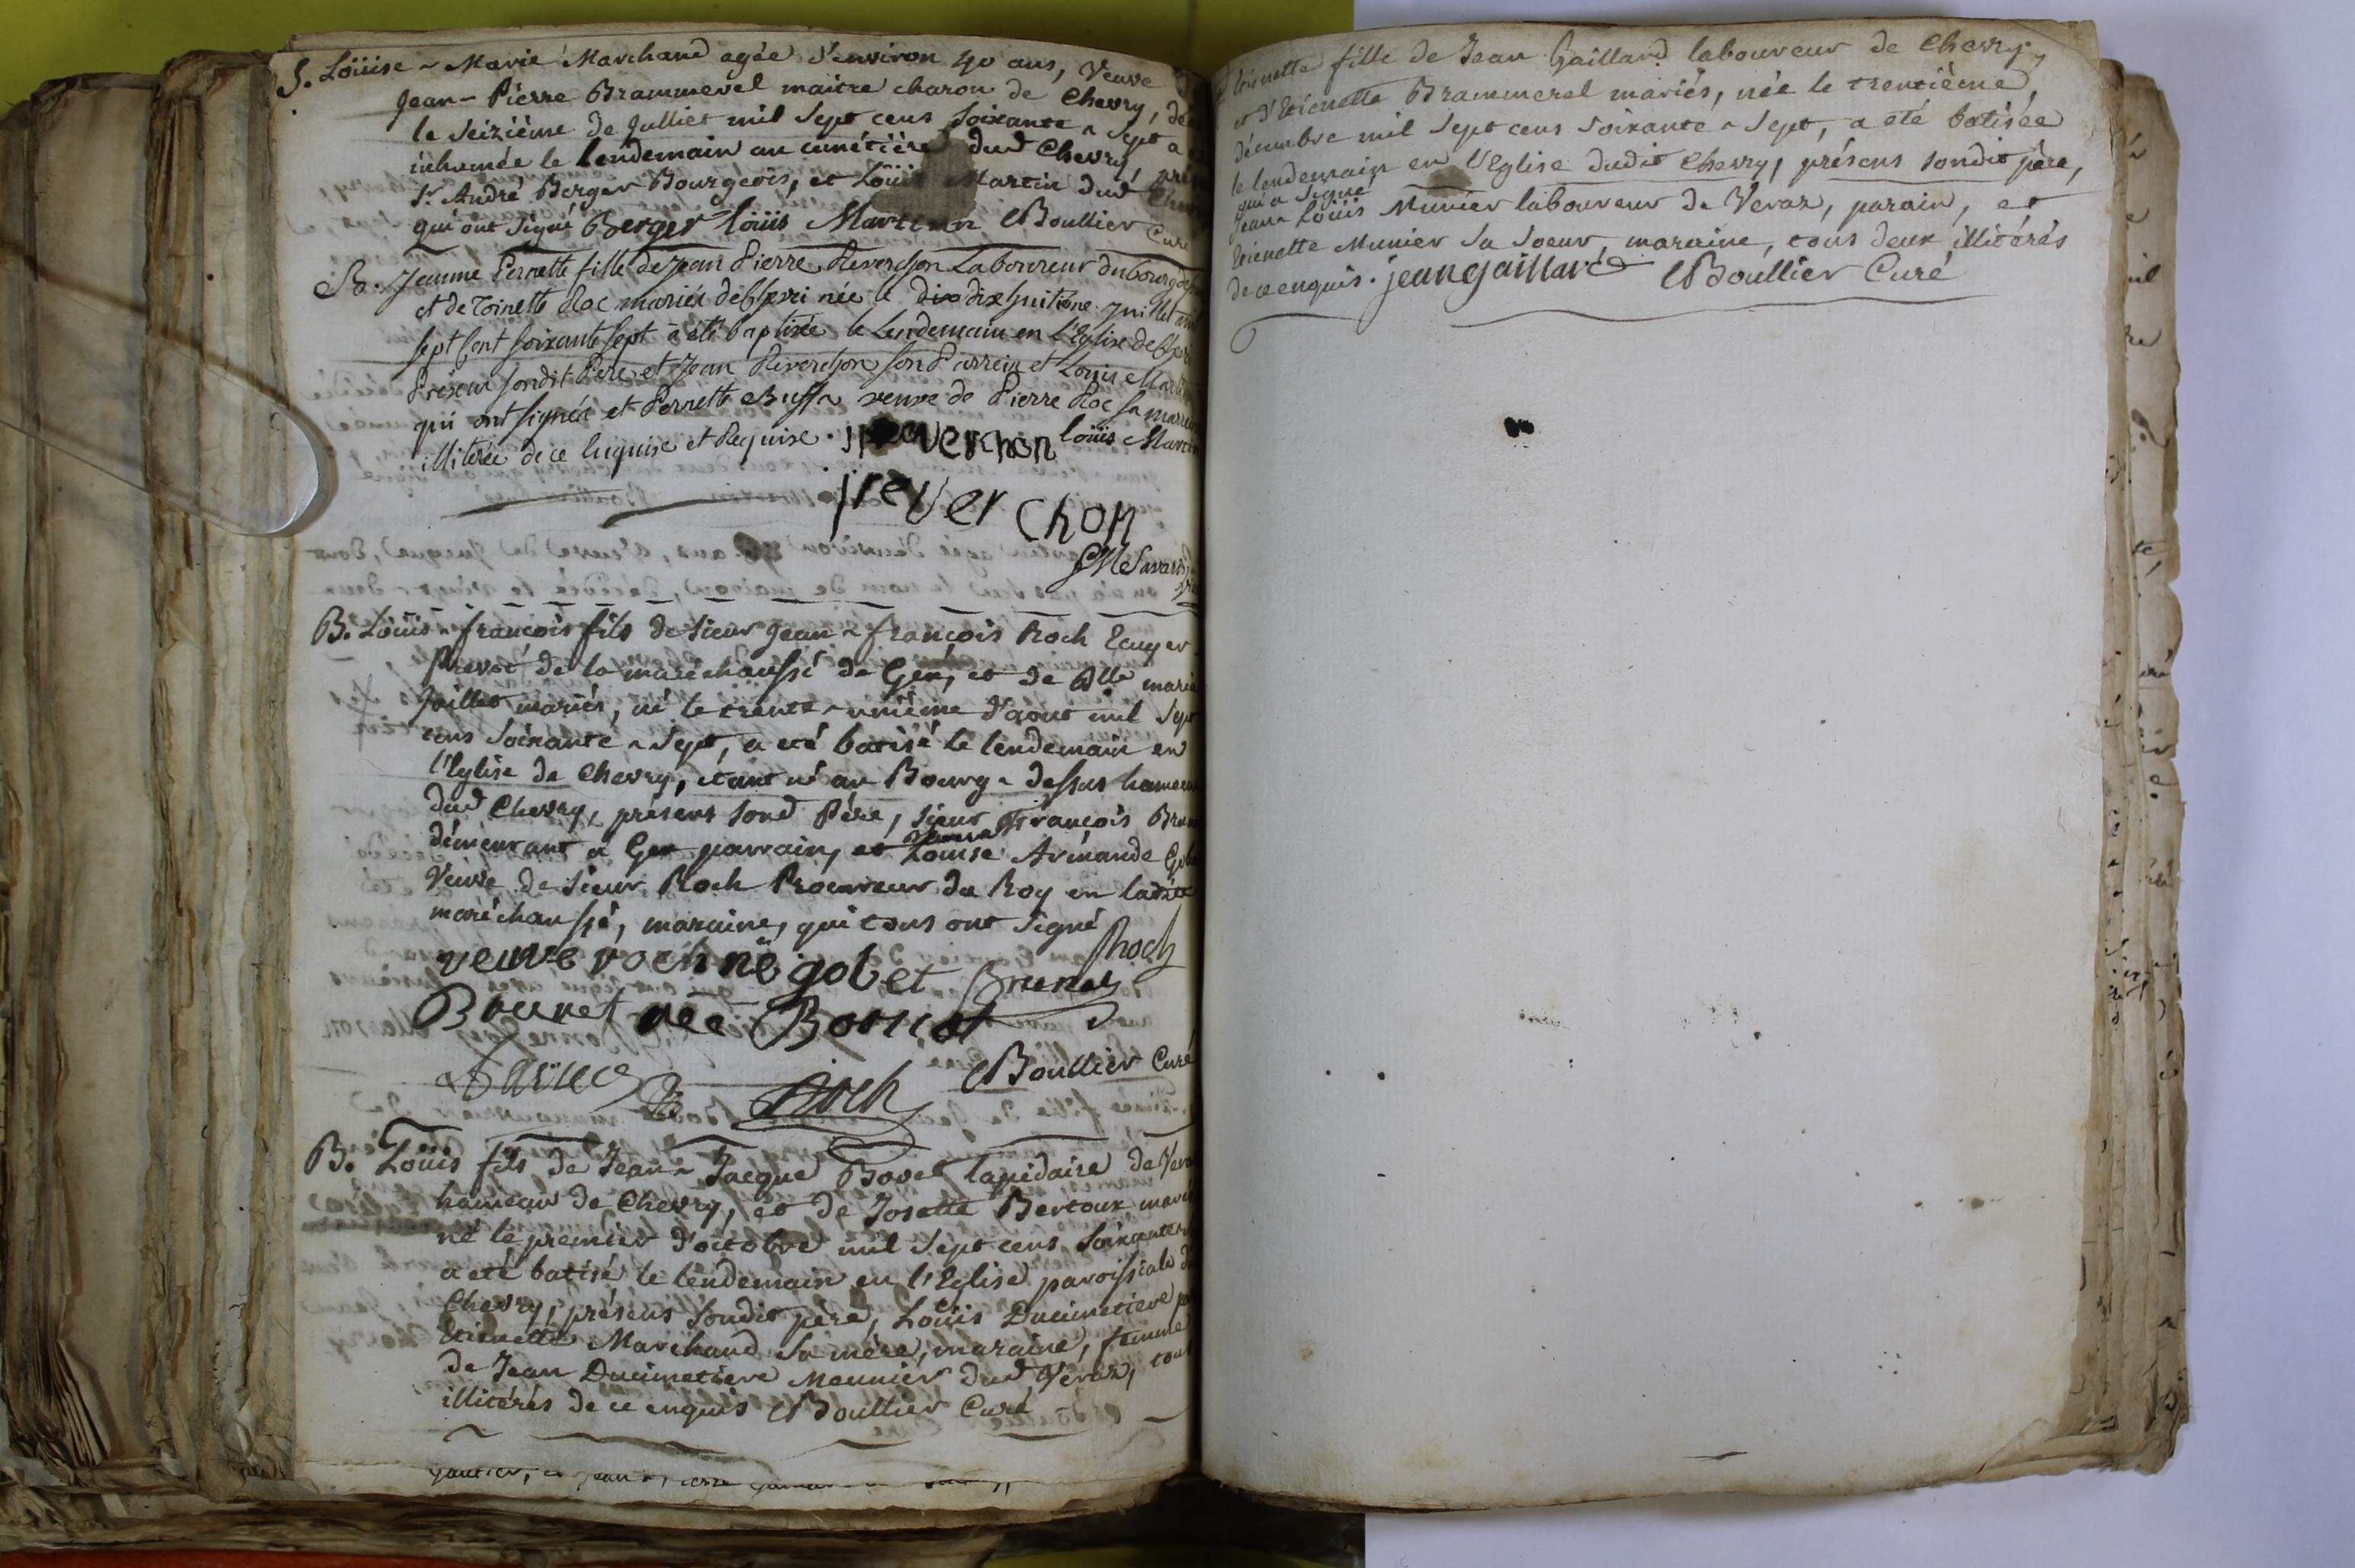 S. Loüise-Marie Marchand agée d'environ 40 ans, Veuve
Jean-Pierre Brammerel maitre charon de Chevry, de
le seizième de Julliet mil sept cens soixante-sept a
inhumée le lendemain au cimétière dud Chevry,
Sr. André Berger Bourgeois, et Loüis Martin dud
qui ont signé Berger loüis Martin Boullier Curé
Ba. Jeanne Pernette fille de Jean Pierre Reverchon Laboureur du bourg
et de Toinette Roc mariés de Chevri née le dix dixhuitième Juillet mil
sept cent soixante sept a été baptisée le Lendemain en L'Eglise de
Présent sondit Pere et Jean Reverchon son Parrein et Louis Martin
qui ont signés et Pernette veuve de Pierre Roc sa marreine
illiterée de ce Enquise et Requise. reverchon loüis Martin
j reverchon
B. Loüis-francois fils de sieur Jean-françois Roch Ecuyer
Prevot de la maréchaussé de Gex, et de Dlle marie
Jaillet mariés, né le trente-unième d'aout mil sept
cens soixante-sept, a eté batisé le lendemain en
l'Eglise de Chevry, étant né au Bourg-dessus hameau
dud Chevry, présens sond Père, sieur François
démeurant a Gex parrain, et Loüise Armande
Veuve de sieur Roch Procureur du Roy en ladite
maréchaussé, maraine, qui tous ont signé
veuve roch né gobet Brunet Rhoch
Brunet née
Roch Boullier Curé
B. Loüis fils de Jean-Jacque Bovet lapidaire de
hameau de Chevry, et de Josette Bertoux mariés
né le premier d'octobre mil sept cens soixante
a eté batisé le lendemain en l'Eglise paroissiale
Chevry, présens sondit père, Loüis Ducimetiere
Etienette Marchand sa mère, maraine, femme
de Jean Ducimetiere Meunier dud Veraz, tous
illitérés de ce enquis Boullier Curé
Etienette fille de Jean Gaillard laboureur de Chevry,
et d'Etienette Brammerel mariés, née le trentième
décembre mil sept cens soixante-sept, a eté batisée
le lendemain en l'Eglise dudit Chevry, présens sondit père,
qui a signé
Jean-Loüis Munier laboureur de Veraz, parain, et
Etienette Munier sa soeur, maraine, tous deux illitérés
de ce enquis. jean gaillard Boullier Curé